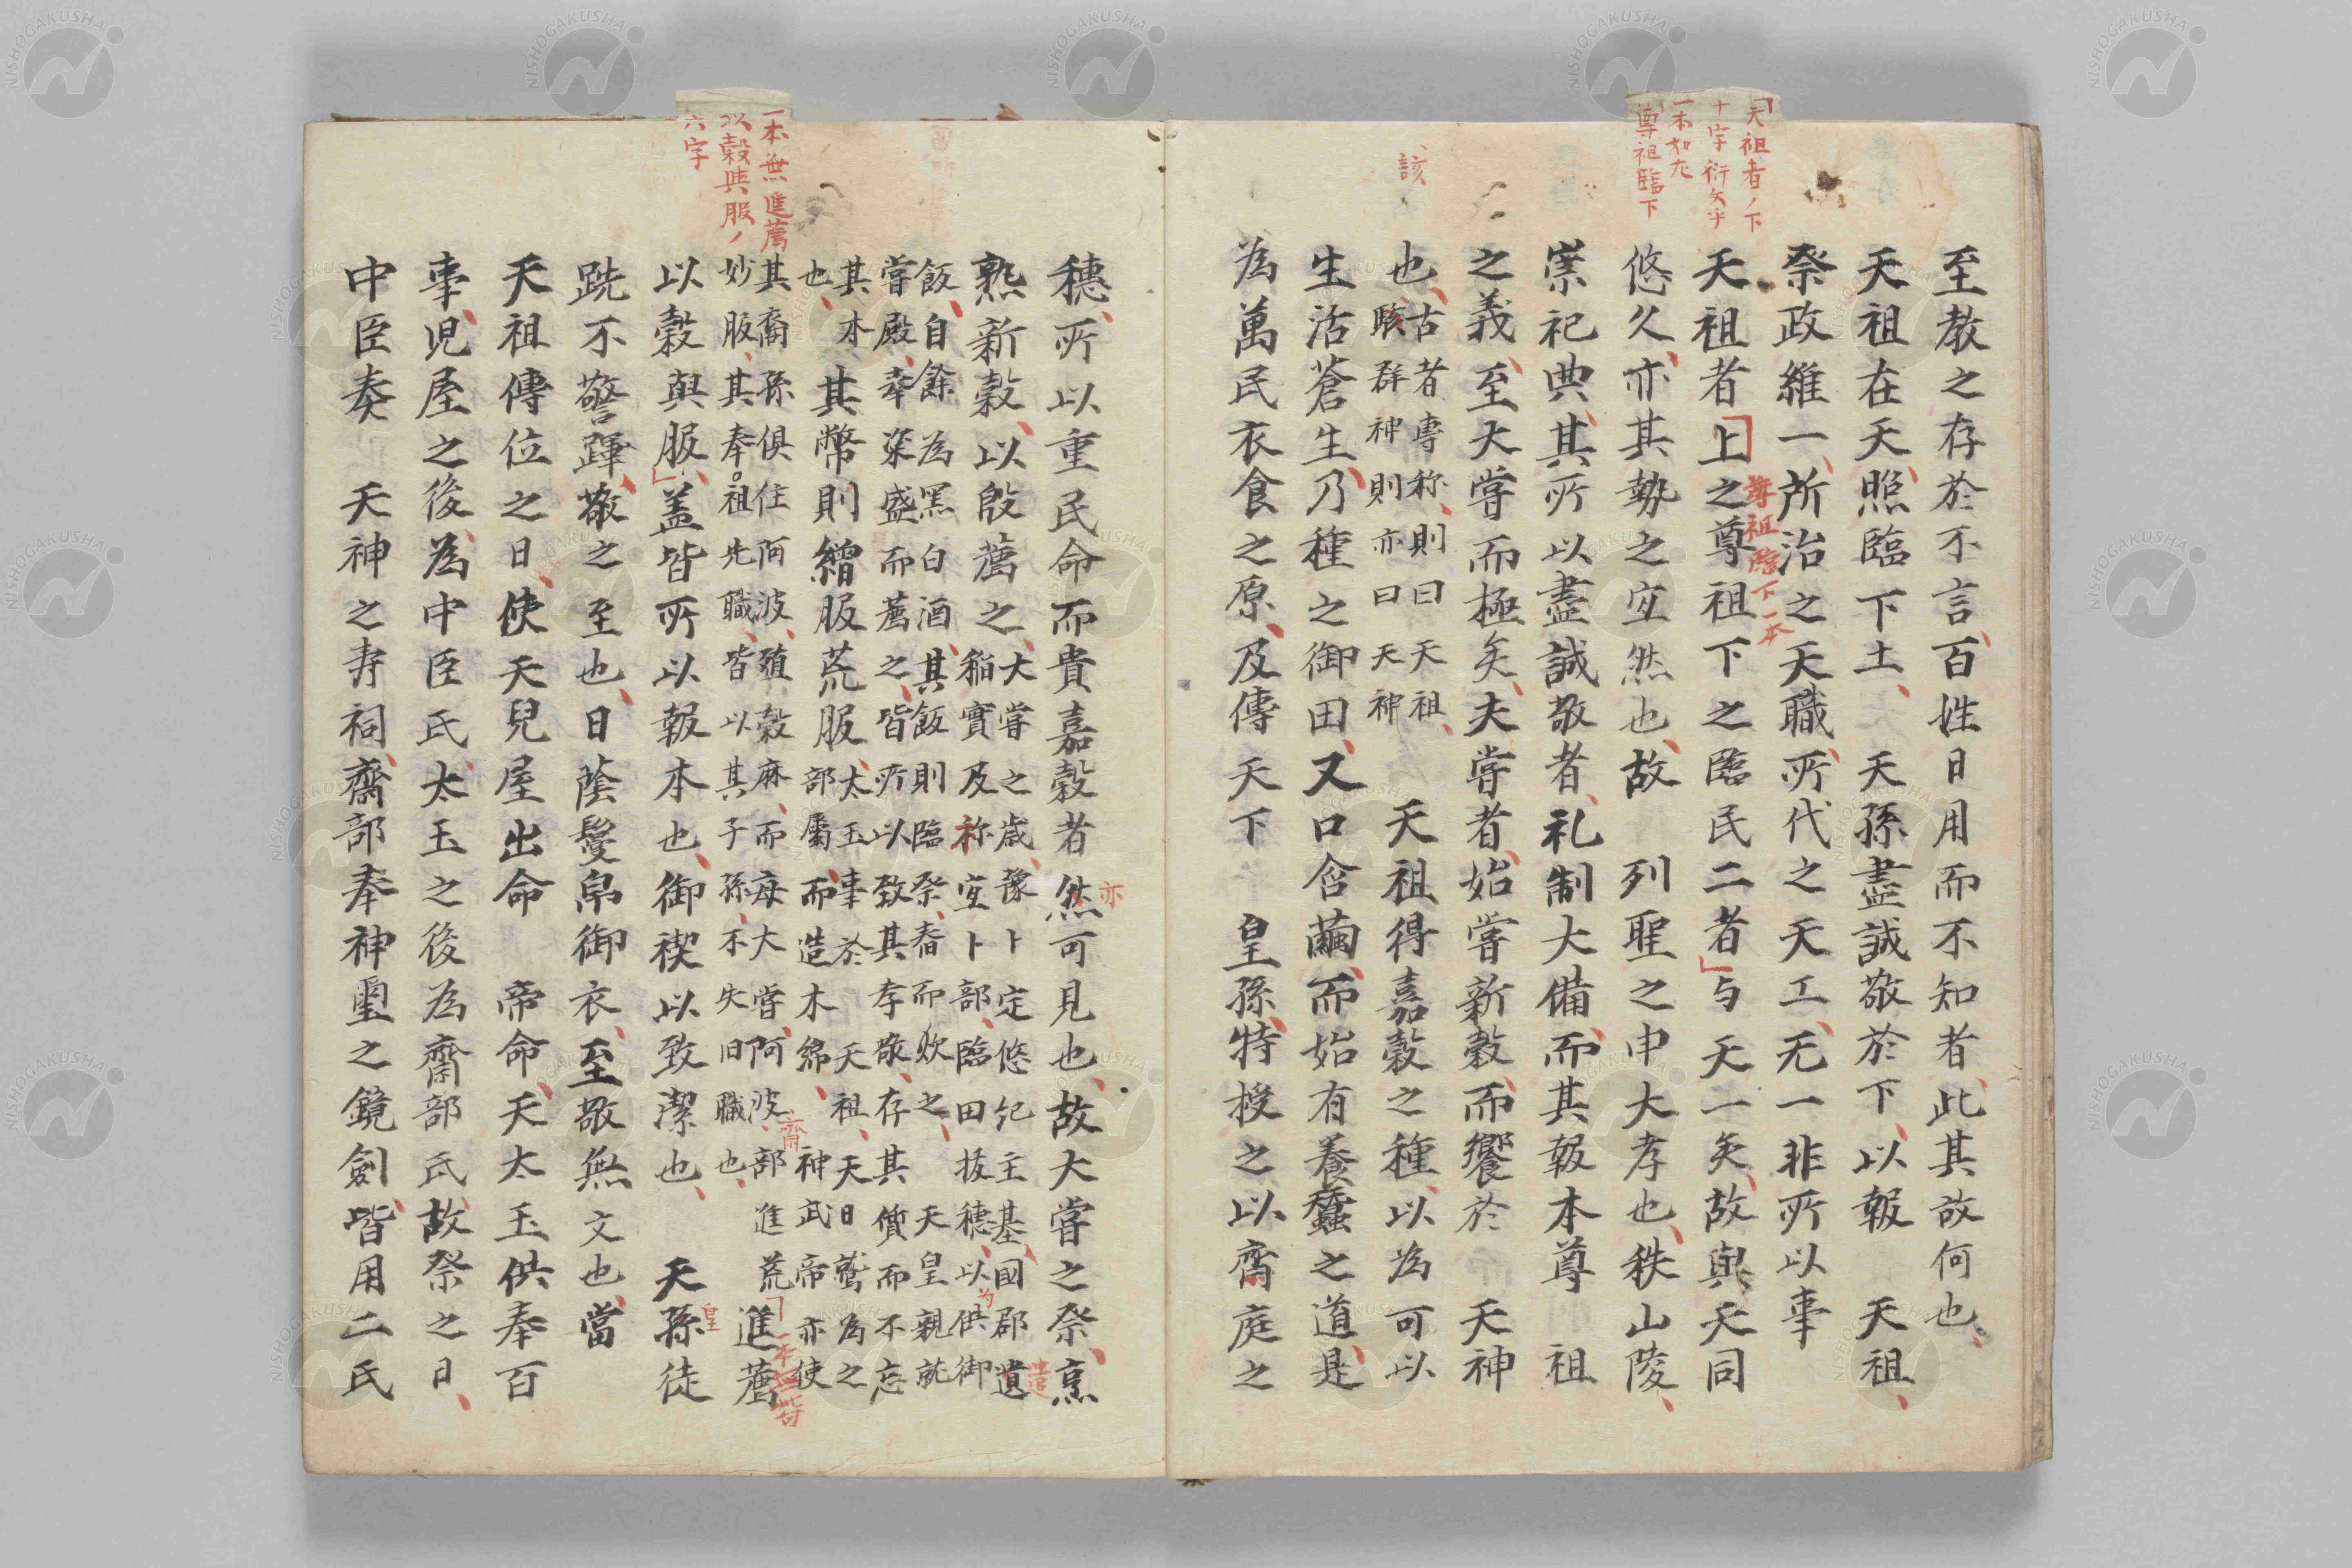 「天祖者ノ下
十字衍矢乎
一本如左
「尊祖臨下
至教之存於不言百姓日用而不知者此其故何也
天祖在天照臨下土　天孫盡誠敬於下以報　天祖
祭政維一所治之天職所代之天工无一非所以事
天祖者上之尊祖下之臨民二者与天一矣故與天同
尊祖臨下一本
悠久亦其勢之宜然也故　列聖之申大孝也秩山陵
崇祀典其所以盡誠敬者礼制大備而其報本尊　祖
之義至大嘗而極矣夫嘗者始嘗新穀而饗於　天神
該
也古者専称則曰　天祖
駭群神則亦曰　天神
天祖得嘉穀之種以為可以
生活蒼生乃種之御田又口含繭而始有養蠶之道是
為萬民衣食之原及傳　天下　皇孫特授之以齋庭之
穗所以重民命而貴嘉穀者然可見也故大嘗之祭烹
亦
熟新穀以殷薦之
大嘗之歳豫卜定悠紀主基國郡遺
造
稲實及祢宜卜部臨田抜穗以供御
为
飯自餘為黑白酒其飯則臨祭舂而炊之　天皇親就
嘗殿奉粢盛而薦之皆所以致其孝敬存其質而不忘
其本
也
其幣則繒服荒服
太玉事於　天祖天日鷲為之
部屬而造木綿　神武帝亦使
一本無進薦
以穀與服ノ
六字
其裔孫俱住阿波殖穀麻而每大嘗阿波部進荒
齋
妙服其奉祖先職皆以其子孫不失旧職也
進薦
一本無此句
以穀與服蓋皆所以報本也御禊以致潔也　天孫徒
皇
跣不警蹕敬之至也日蔭鬘帛御衣至敬無文也當
天祖傳位之日使天兒屋出命　帝命天太玉供奉百
事児屋之後為中臣氏太玉之後為齋部氏故祭之日
中臣奏　天神之寿祠齋部奉神璽之鏡劍皆用二氏